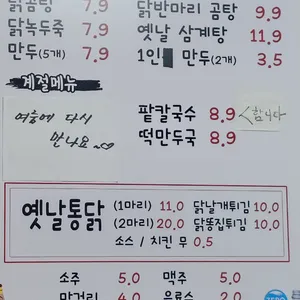 닭곰탕 7.9 닭반마리 곰탕 9.9
닭녹두죽 7.9 옛날 삼계탕 11.9
만두(5개) 7.9 1인 만두(2개) 3.5
계절메뉴
여름에 다시
만나요~
팥칼국수 8.9 <합니다
떡만두국 8.9
옛날통닭 (1마리) 11.0 닭날개튀김 10.0
(2마리) 20.0 닭똥집튀김 10.0
소스 / 치킨 무 0.5
소주 5.0 맥주 5.0
막걸리 4.0 음료수 2.0
ZERO